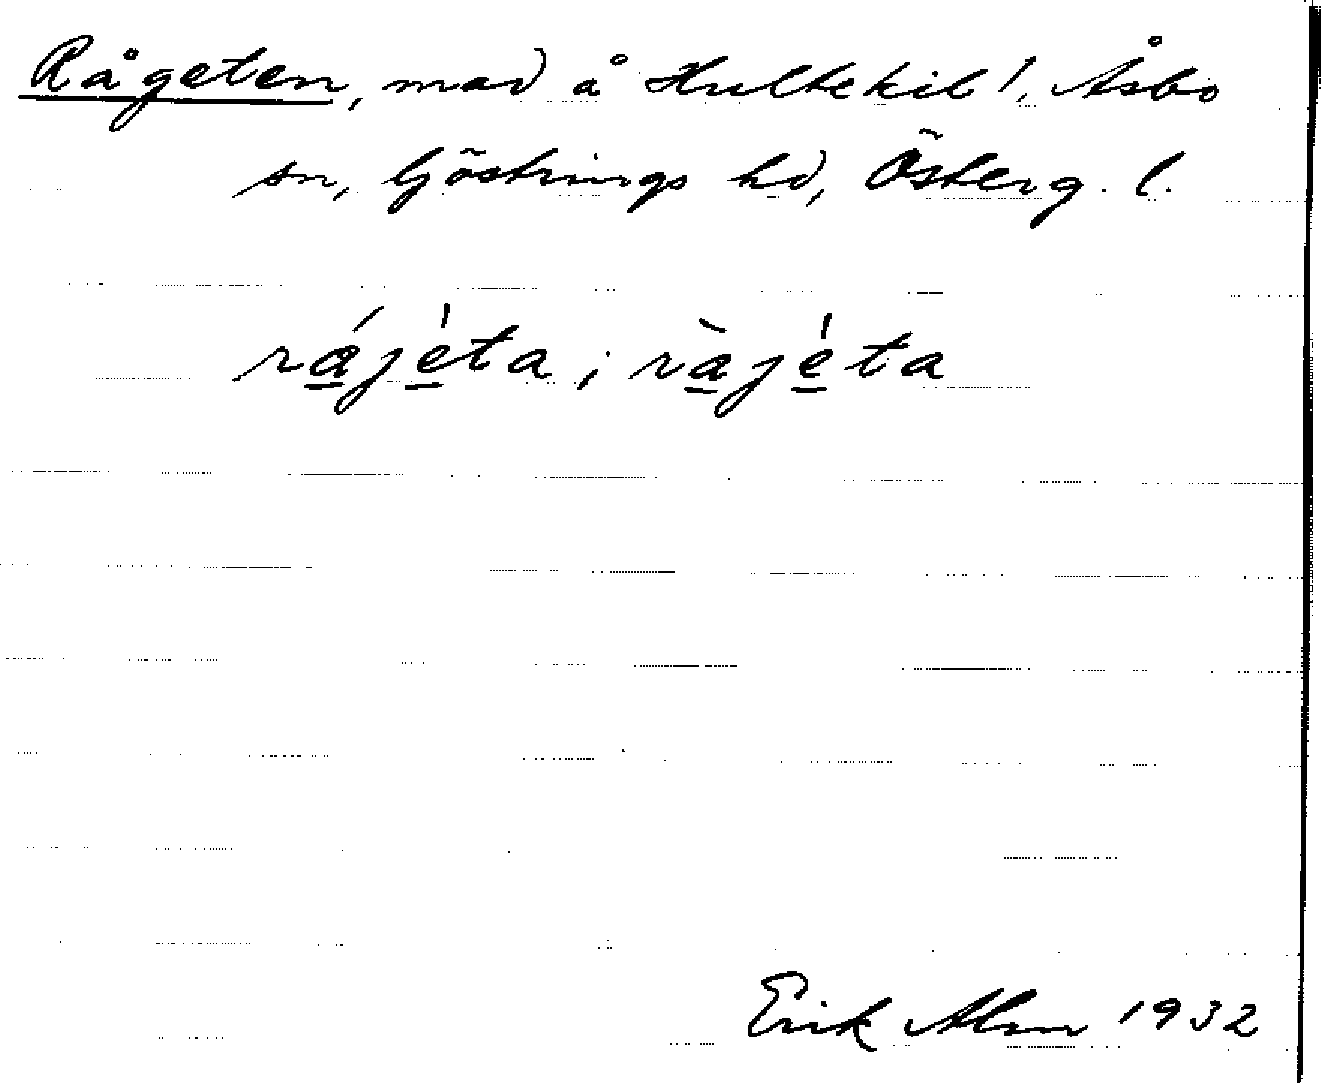 Rågeten, mad å Hultekil 1, Åsbo
sn, Göstrings hd, Österg. l.
rájéta; ràjéta
Erik Alm 1932